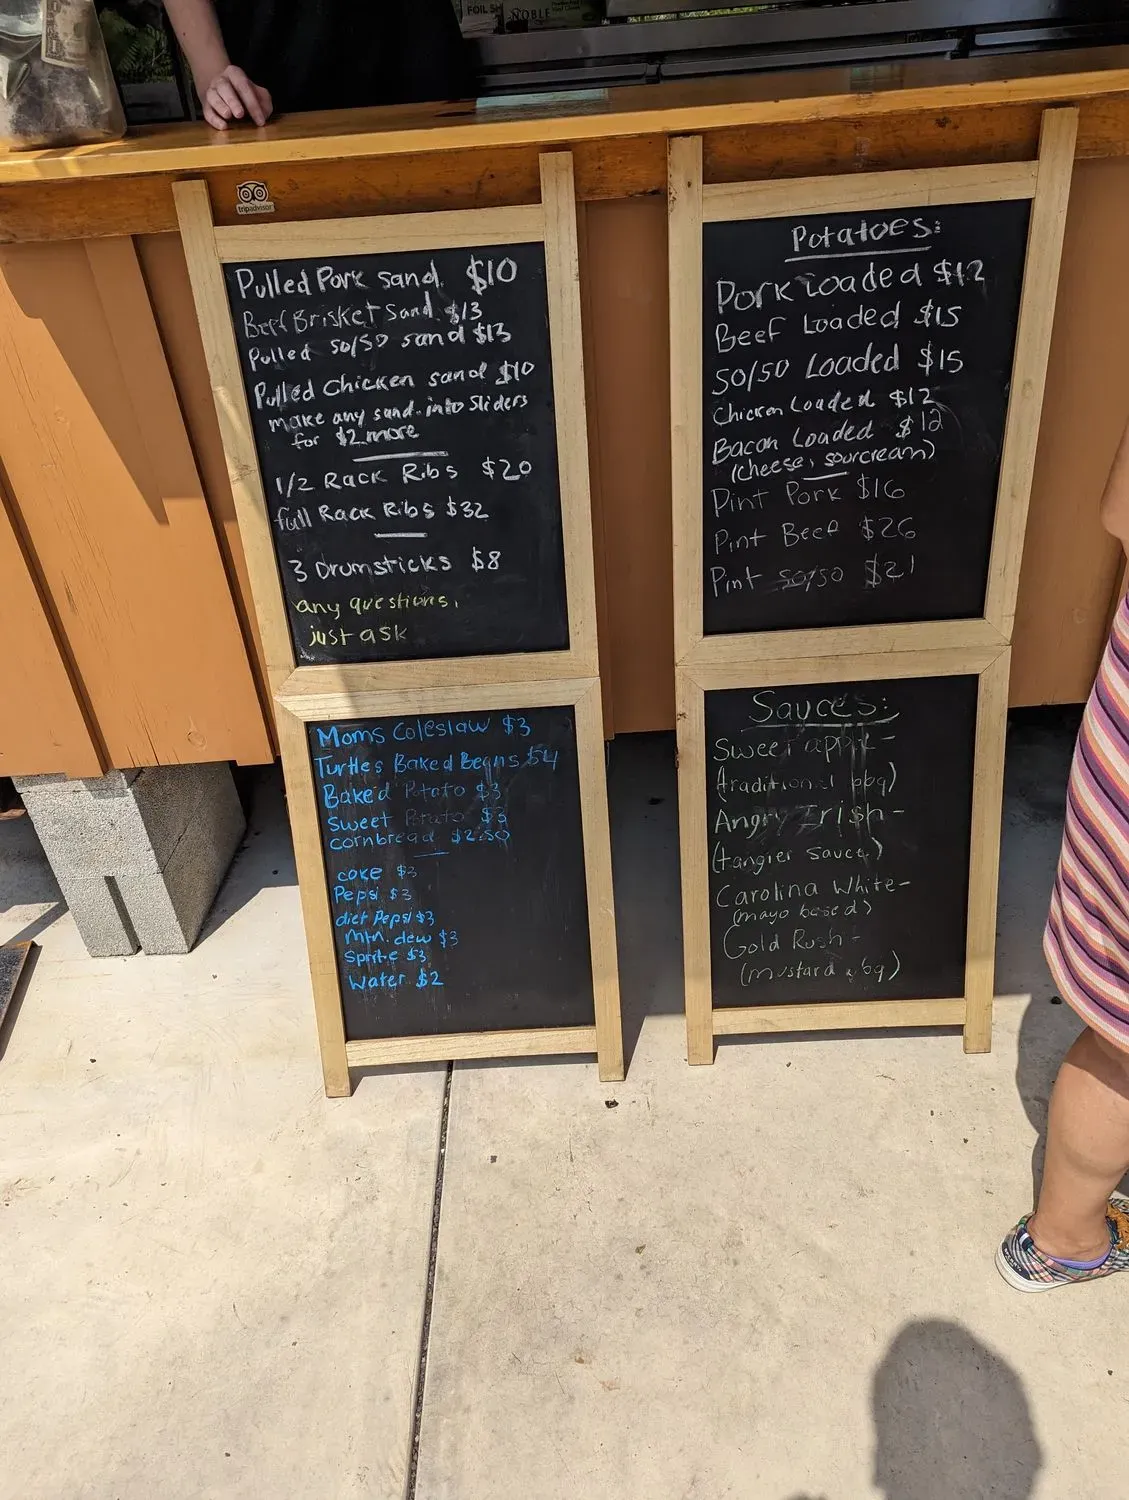 FOIL SH
NOBLE
tripadvisor
Pulled Pork sand. $10
Beef Brisket Sand. $13
Pulled 50/50 sand $13
Pulled Chicken sand $10
make any sand. into Sliders
for $2 more
1/2 Rack Ribs $20
full Rack Ribs $32
3 Drumsticks $8
any questions,
just ask
Moms Coleslaw $3
Turtles Baked Beans $4
Baked Potato $3
Sweet Potato $3
cornbread $2.50
coke $3
Pepsi $3
diet Pepsi $3
Mtn. dew $3
Sprite $3
Water $2
Potatoes:
Pork Loaded $12
Beef Loaded $15
50/50 Loaded $15
Chicken Loaded $12
Bacon Loaded $12
(cheese, sourcream)
Pint Pork $16
Pint Beef $26
Pint 50/50 $21
Sauces:
Sweet apple -
(traditional bbq)
Angry Irish -
(tangier sauce)
Carolina White -
(mayo based)
Gold Rush -
(mustard bbq)